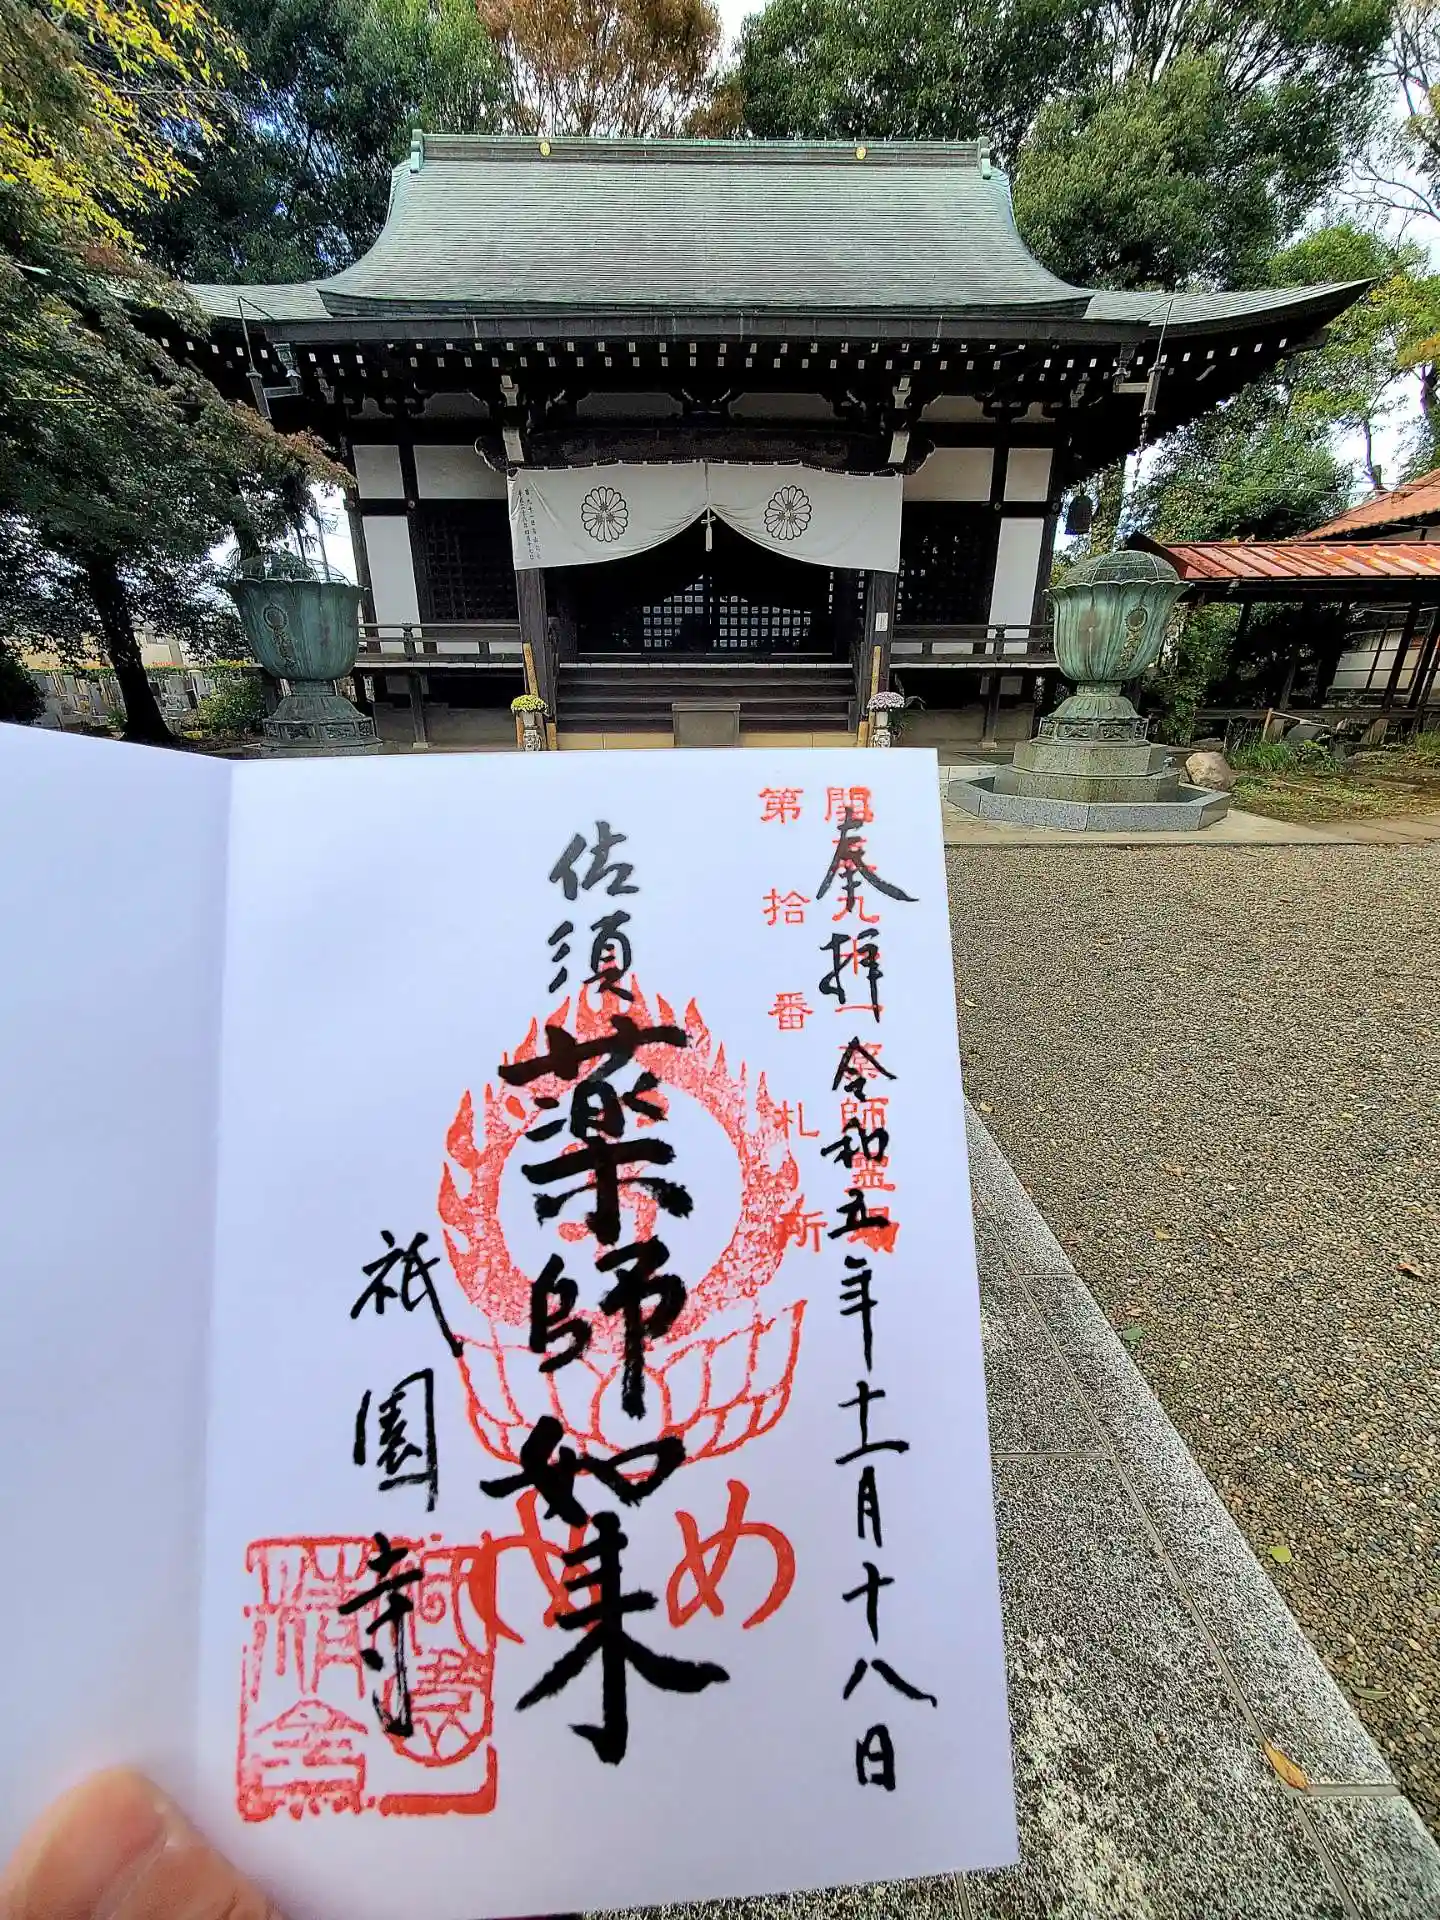 奉拝 令和五年十一月十八日
関東九十一薬師霊場
第拾番札所
佐須
薬師如来
めめ
祇園寺